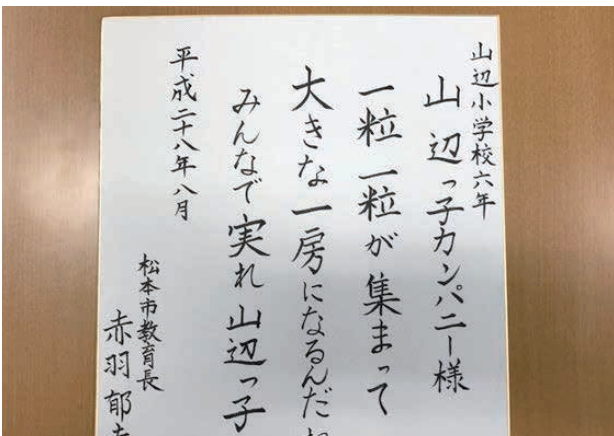 山辺小学校六年
山辺っ子カンパニー様
一粒一粒が集まって
大きな一房になるんだ
みんなで実れ山辺っ子
平成二十八年八月
松本市教育長
赤羽郁